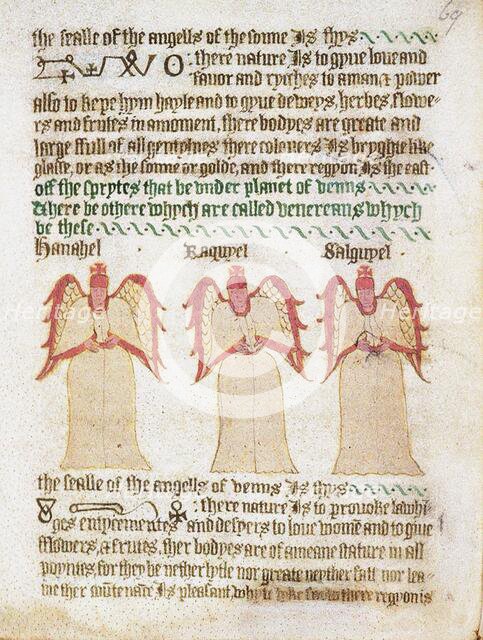 69
the sealle of the angells of the sonne Is thys
: there nature Is to gyue loue and
fauor and ryches to a man & power
also to kepe hym hayle and to gyue deweys, herbes, flowe=
rs and frutes in a moment, there bodyes are greate and
large ffull of all gentylnes there colouers Is bryghte like
glasse, or as the sonne or golde, and there regyon Is the east.
off the sprytes that be vnder planet of venus
There be othere whych are called venereans whych
be these
Hanahel . Raquyel . Salguyel .
the sealle of the angells of venus Is thys
: there nature Is to prouoke lawhi=
ges entycementes and desyers to loue womē and to giue
fflowers, & frutes, ther bodyes are of a meane stature in all
poyntts, for they be nether lytle nor greate neyther fatt nor lea=
ne ther is pleasant whyte like snow there regyon is
Heritage
Heritage